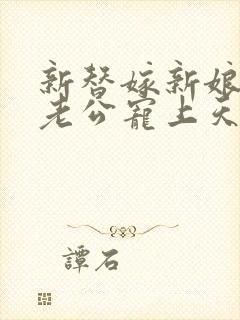 新替嫁新娘
老公寵上天
譚石